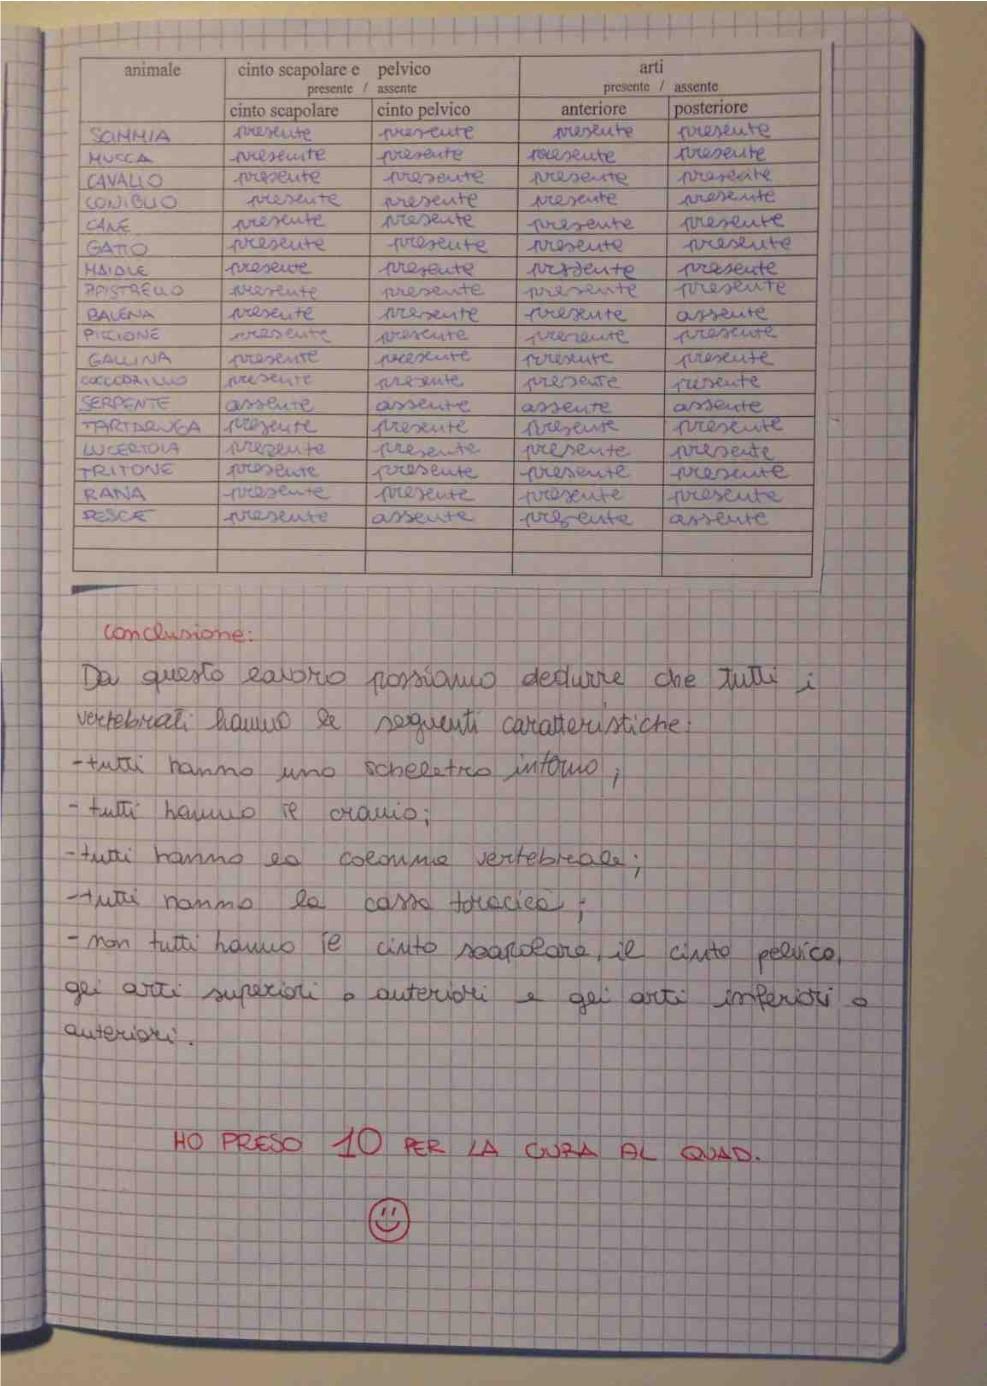 animale cinto scapolare e pelvico arti
presente / assente presente / assente
cinto scapolare cinto pelvico anteriore posteriore
SCIMMIA presente presente presente presente
MUCCA presente presente presente presente
CAVALLO presente presente presente presente
CONIGLIO presente presente presente presente
CANE presente presente presente presente
GATTO presente presente presente presente
MAIALE presente presente presente presente
PIPISTRELLO presente presente presente presente
BALENA presente presente presente assente
PICCIONE presente presente presente presente
GALLINA presente presente presente presente
COCCODRILLO presente presente presente presente
SERPENTE assente assente assente assente
TARTARUGA presente presente presente presente
LUCERTOLA presente presente presente presente
TRITONE presente presente presente presente
RANA presente presente presente presente
PESCE presente assente presente assente
conclusione:
Da questo lavoro possiamo dedurre che tutti i
vertebrati hanno le seguenti caratteristiche:
-tutti hanno uno scheletro interno;
- tutti hanno il cranio;
-tutti hanno la colonna vertebrale;
-tutti hanno la cassa toracica;
- non tutti hanno il cinto scapolare, il cinto pelvico,
gli arti superiori o anteriori e gli arti inferiori o
anteriori.
HO PRESO 10 PER LA CURA AL QUAD.